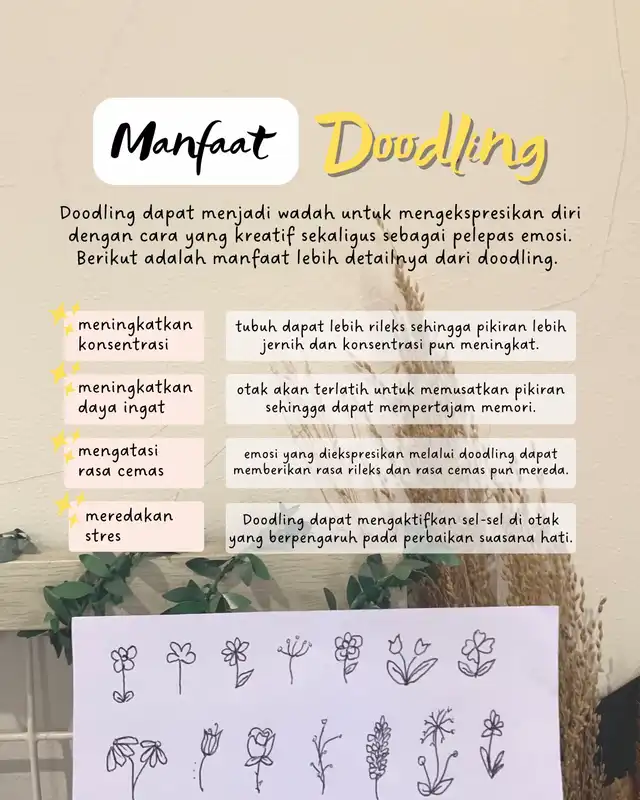 Manfaat Doodling
Doodling dapat menjadi wadah untuk mengekspresikan diri
dengan cara yang kreatif sekaligus sebagai pelepas emosi.
Berikut adalah manfaat lebih detailnya dari doodling.
meningkatkan
konsentrasi
tubuh dapat lebih rileks sehingga pikiran lebih
jernih dan konsentrasi pun meningkat.
meningkatkan
daya ingat
otak akan terlatih untuk memusatkan pikiran
sehingga dapat mempertajam memori.
mengatasi
rasa cemas
emosi yang diekspresikan melalui doodling dapat
memberikan rasa rileks dan rasa cemas pun mereda.
meredakan
stres
Doodling dapat mengaktifkan sel-sel di otak
yang berpengaruh pada perbaikan suasana hati.